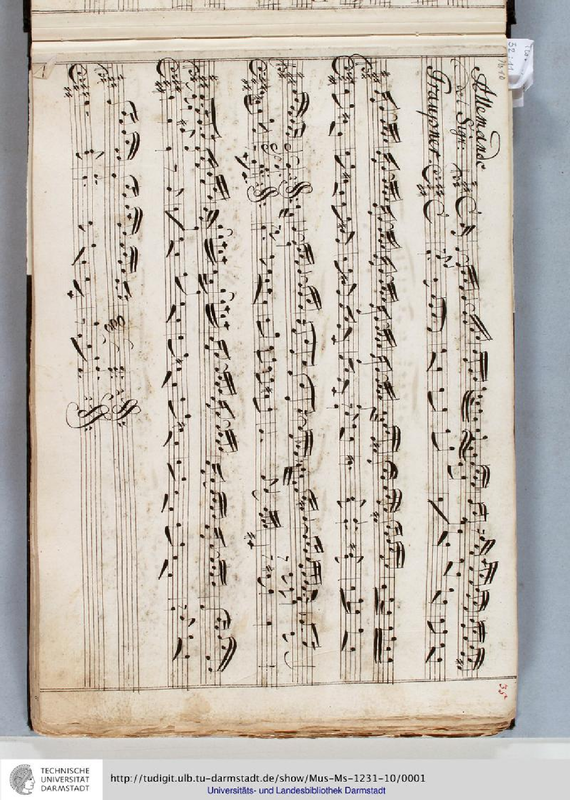 Allemande
del Sign:
Graupner.
35
TECHNISCHE
UNIVERSITÄT
DARMSTADT
http://tudigit.ulb.tu-darmstadt.de/show/Mus-Ms-1231-10/0001
Universitäts- und Landesbibliothek Darmstadt